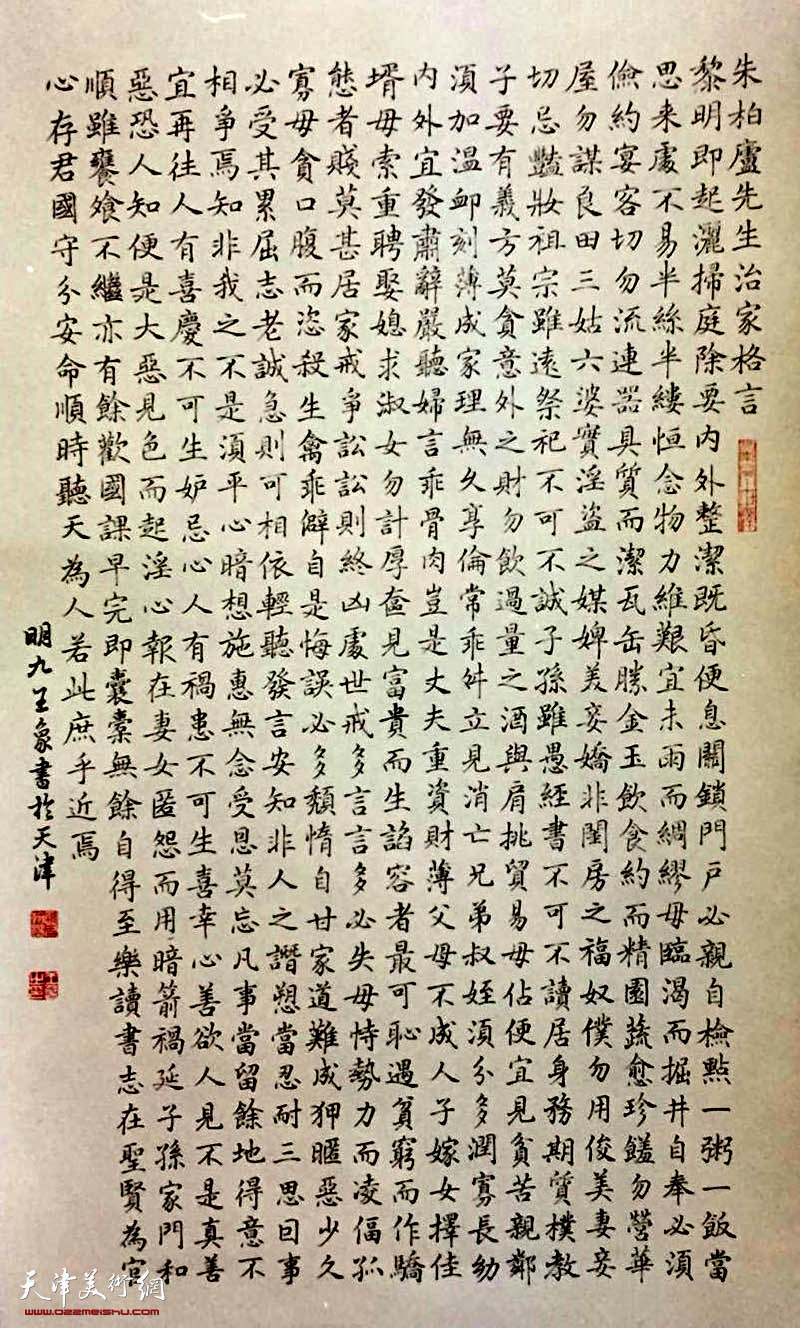 朱柏廬先生治家格言
黎明即起灑掃庭除要内外整潔既昏便息關鎖門戸必親自檢點一粥一飯當
思来處不易半絲半縷恒念物力維艱宜未雨而綢繆毋臨渴而掘井自奉必須
儉約宴客切勿流連器具質而潔瓦缶勝金玉飲食約而精園蔬愈珍饈勿營華
屋勿謀良田三姑六婆實淫盜之媒婢美妾嬌非閨房之福奴僕勿用俊美妻妾
切忌豔妝祖宗雖遠祭祀不可不誠子孫雖愚經書不可不讀居身務期質樸教
子要有義方莫貪意外之財勿飲過量之酒與肩挑貿易毋佔便宜見貧苦親鄰
須加温卹刻薄成家理無久享倫常乖舛立見消亡兄弟叔姪須分多潤寡長幼
内外宜發肅辭嚴聽婦言乖骨肉豈是丈夫重資財薄父母不成人子嫁女擇佳
壻毋索重聘娶媳求淑女勿計厚奩見富貴而生諂容者最可恥遇貧窮而作驕
態者賤莫甚居家戒爭訟訟則終凶處世戒多言言多必失毋恃勢力而凌偪孤
寡毋貪口腹而恣殺生禽乖僻自是悔誤必多頹惰自甘家道難成狎暱惡少久
必受其累屈志老誠急則可相依輕聽發言安知非人之譖愬當忍耐三思曰事
相爭焉知非我之不是須平心暗想施惠無念受恩莫忘凡事當留餘地得意不
宜再往人有喜慶不可生妒忌心人有禍患不可生喜幸心善欲人見不是真善
惡恐人知便是大惡見色而起淫心報在妻女匿怨而用暗箭禍延子孫家門和
順雖饔飧不繼亦有餘歡國課早完即囊橐無餘自得至樂讀書志在聖賢為官
心存君國守分安命順時聽天為人若此庶乎近焉
明九王象書於天津
天津美術網
www.022meishu.com